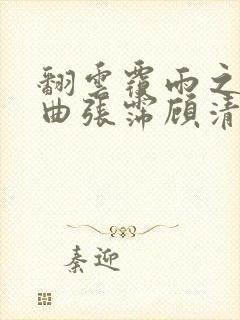 翻雲覆雨之
曲張霈顧清
秦迎